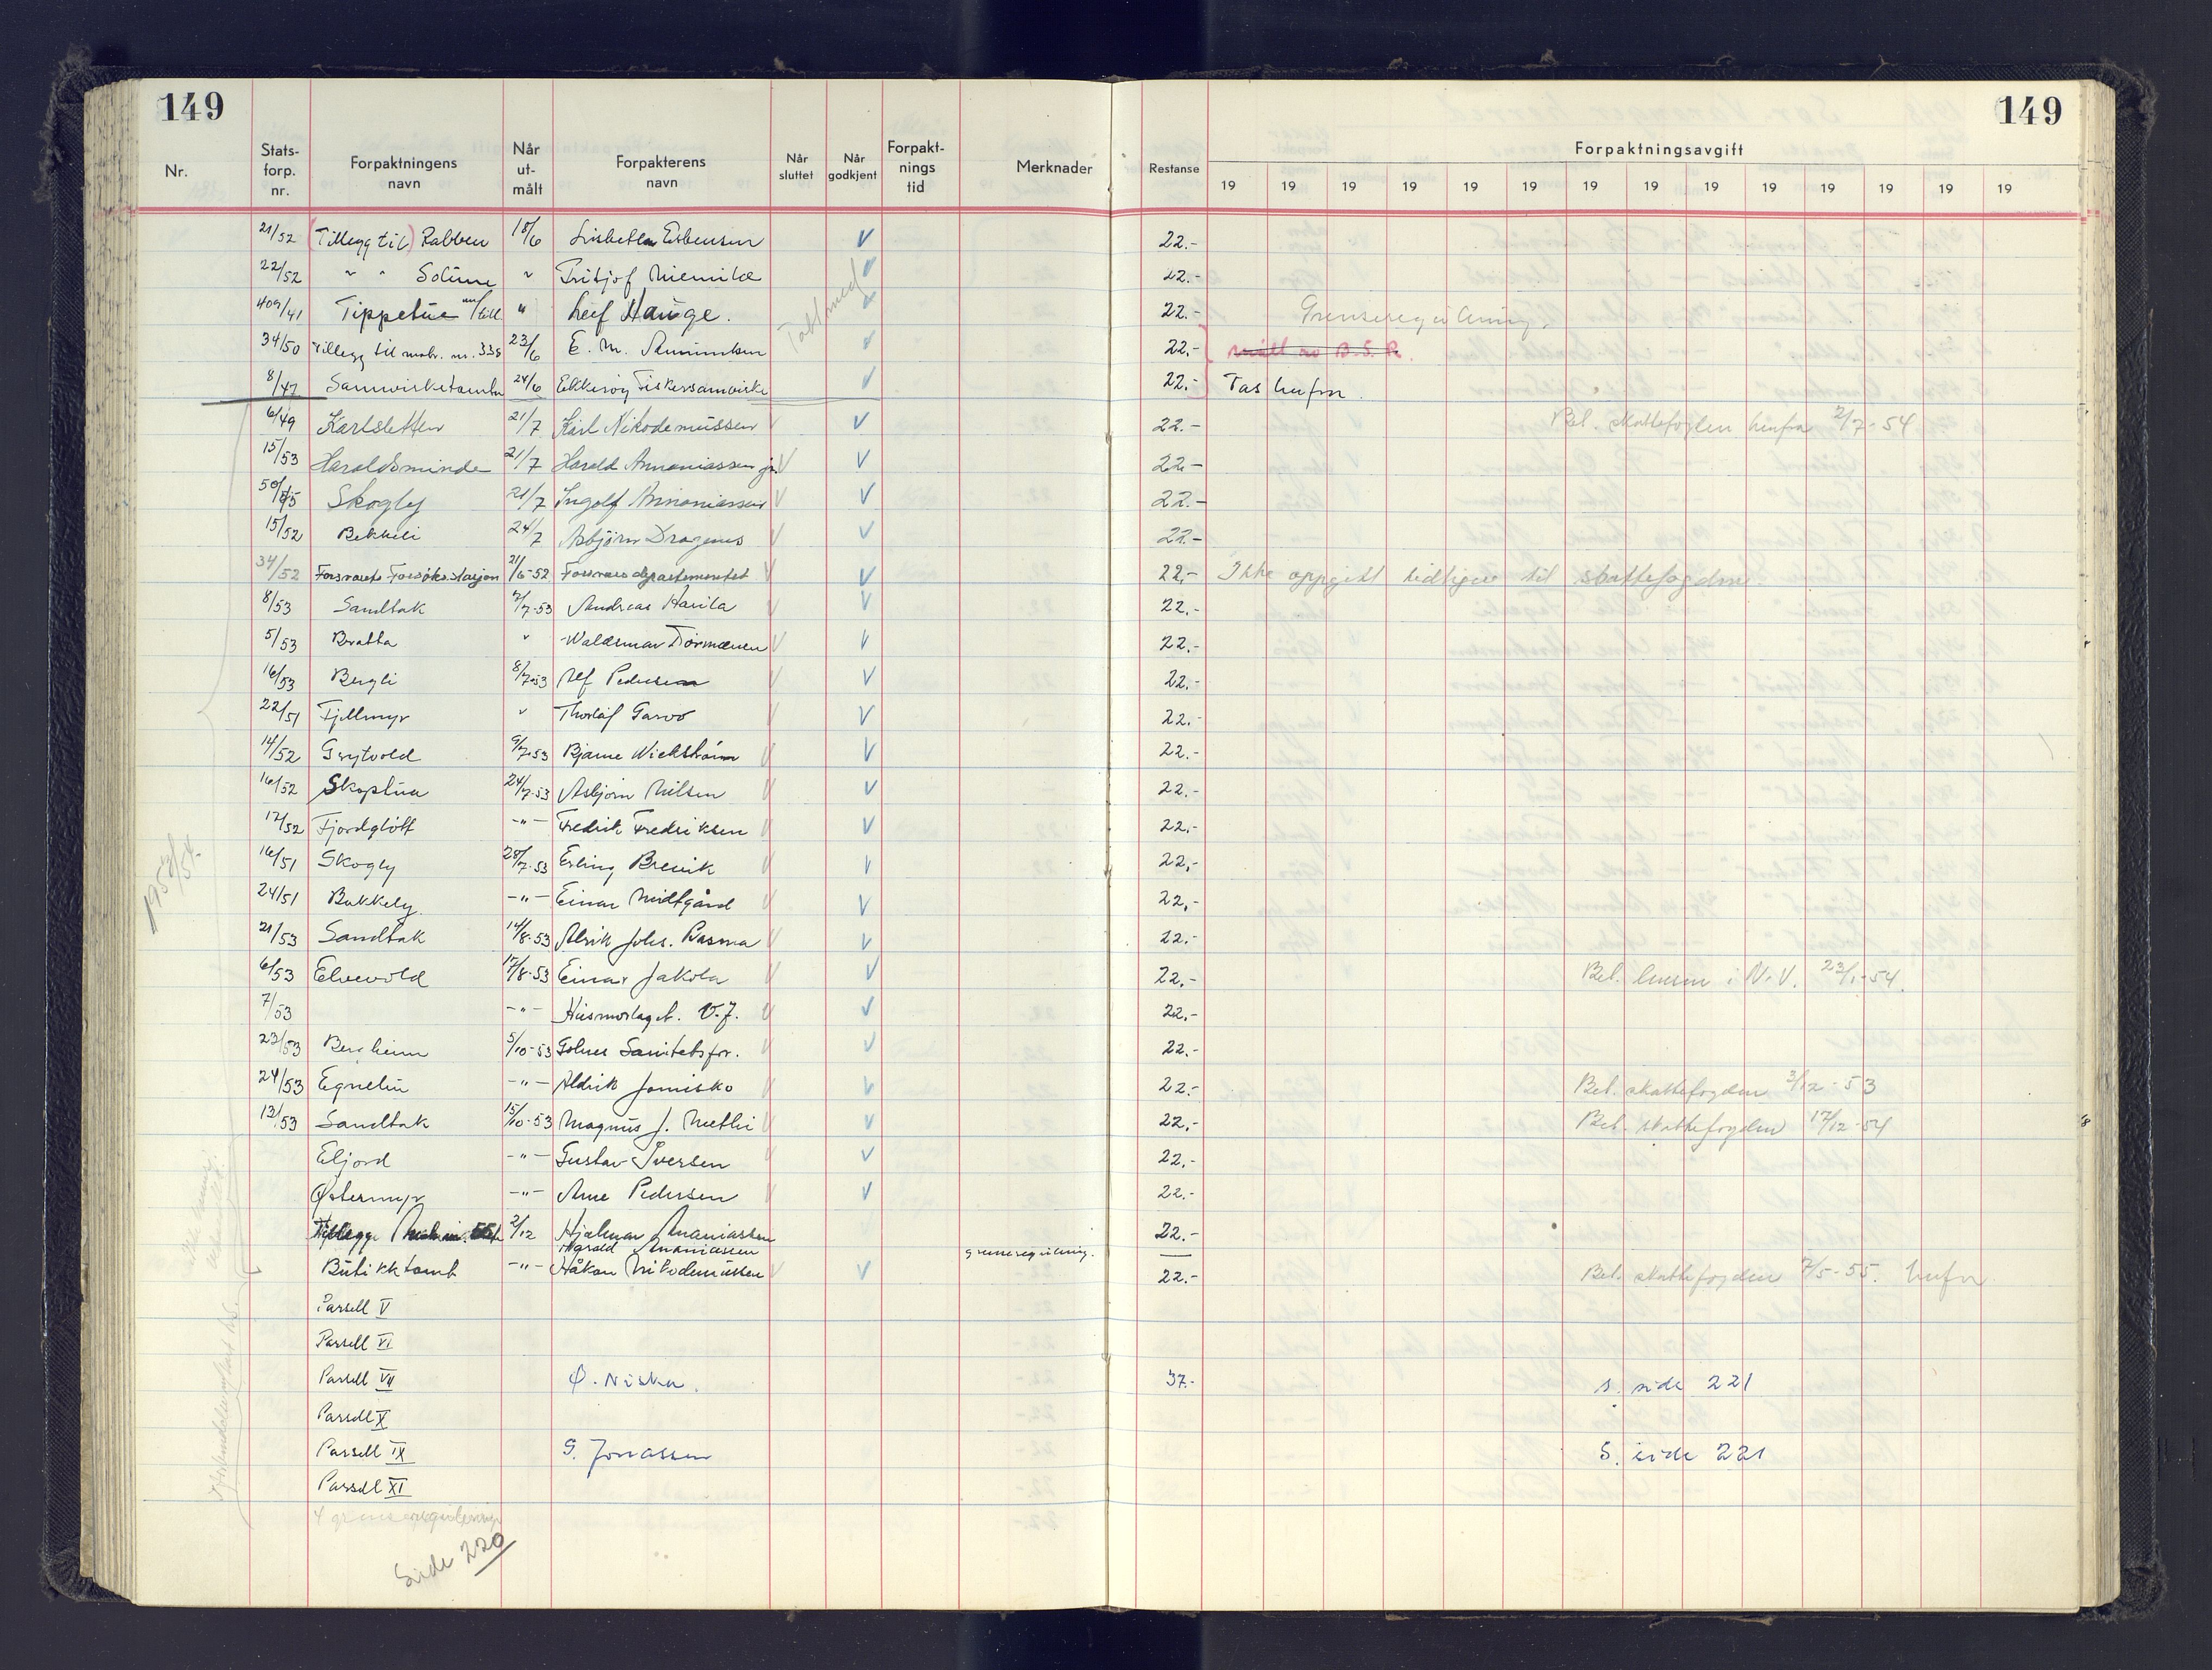 149
149
Nr.
Stats-
forp.
nr.
Forpaktningens
navn
Når
ut-
målt
Forpakterens
navn
Når
sluttet
Når
godkjent
Forpakt-
nings
tid
Merknader
Restanse
Forpaktningsavgift
19 19 19 19 19 19 19 19 19 19 19 19 19 19
21/52 (Tillegg til) Rabben 18/6 Lisbeth Esbensen V 22.-
22/52 " " Solime " Fritjof Niemilæ 22.-
409/41 Tippetue m/till " Leif Hauge. 22.- Grenseregulering.
34/50 Tillegg til matr. nr. 338 23/6 E. M. 22.- målt av B.S.R.
8/47 Samvirketomten 24/6 Ekkerøy Fiskersamvirke 22.- Tas herfra.
6/49 Karlsletten 21/7 Karl Nikodemussen V 22.- Bet. skattefogden herfra 2/7-54
15/53 Haraldsminde 21/7 Harald Annaniassen jr. V V 22.-
50/ Skogly 21/7 Ingolf Annaniassen V V 22.-
15/52 Bekkeli 24/7 Asbjørn Dragenes V V 22.-
34/52 Forsvarets Forsøksstasjon 21/6-52 Forsvarsdepartementet V V 22.- Ikke oppgitt tidligere til skattefogden
8/53 Sandtak 7/7-53 Andreas Havila V V 22.-
5/53 Bratta " Waldemar Tørmænen V V 22.-
16/53 Bergli 8/7-53 Alf Pedersen V V 22.-
22/51 Fjellmyr " Thorlaf Garvo V V 22.-
14/52 Grytvold 9/7-53 Bjarne Wickstrøm V V 22.-
16/52 Skoptua 24/7-53 Asbjørn Nilsen V V 22.-
17/52 Fjordgløtt -"- Fredrik Fredriksen V V 22.-
16/51 Skogly 28/7-53 Erling Brevik V V 22.-
24/51 Bakkely. -"- Einar Midtgård V V 22.-
21/53 Sandtak 14/8-53 Alrik Johs. Basma V V 22.-
6/53 Elvevold 17/8-53 Einar Jakola V V 22.- Bet. i N.V. 23/1-54.
7/53 -"- Husmorlaget. V.J. V V 22.-
23/53 Bergheim 5/10-53 Golnes Sanitetsfor. V V 22.-
24/53 Egnetun -"- Aldrik Jomisko V V 22.- Bet. skattefogden 3/12-53
13/53 Sandtak 15/10-53 Magnus J. Methi V V 22.- Bet. skattefogden 17/12-54
Eljord -"- Gustav Iversen V V 22.-
Østermyr -"- Arne Pedersen V V 22.-
Tillegg 2/12 Hjalmar Ananiassen 22.-
Harald Ananiassen grenseregulering.
Butikktomt -"- Håkon Nikodemussen V V 22.- Bet. skattefogden 7/5-55. herfra
Parsell V
Parsell VI
Parsell VII Ø. Niska. 37.- s. side 221
Parsell X
Parsell IX S. Jonassen S. side 221
Parsell XI
4 grensereguleringer
Side 220
1953/54.
Tatt med